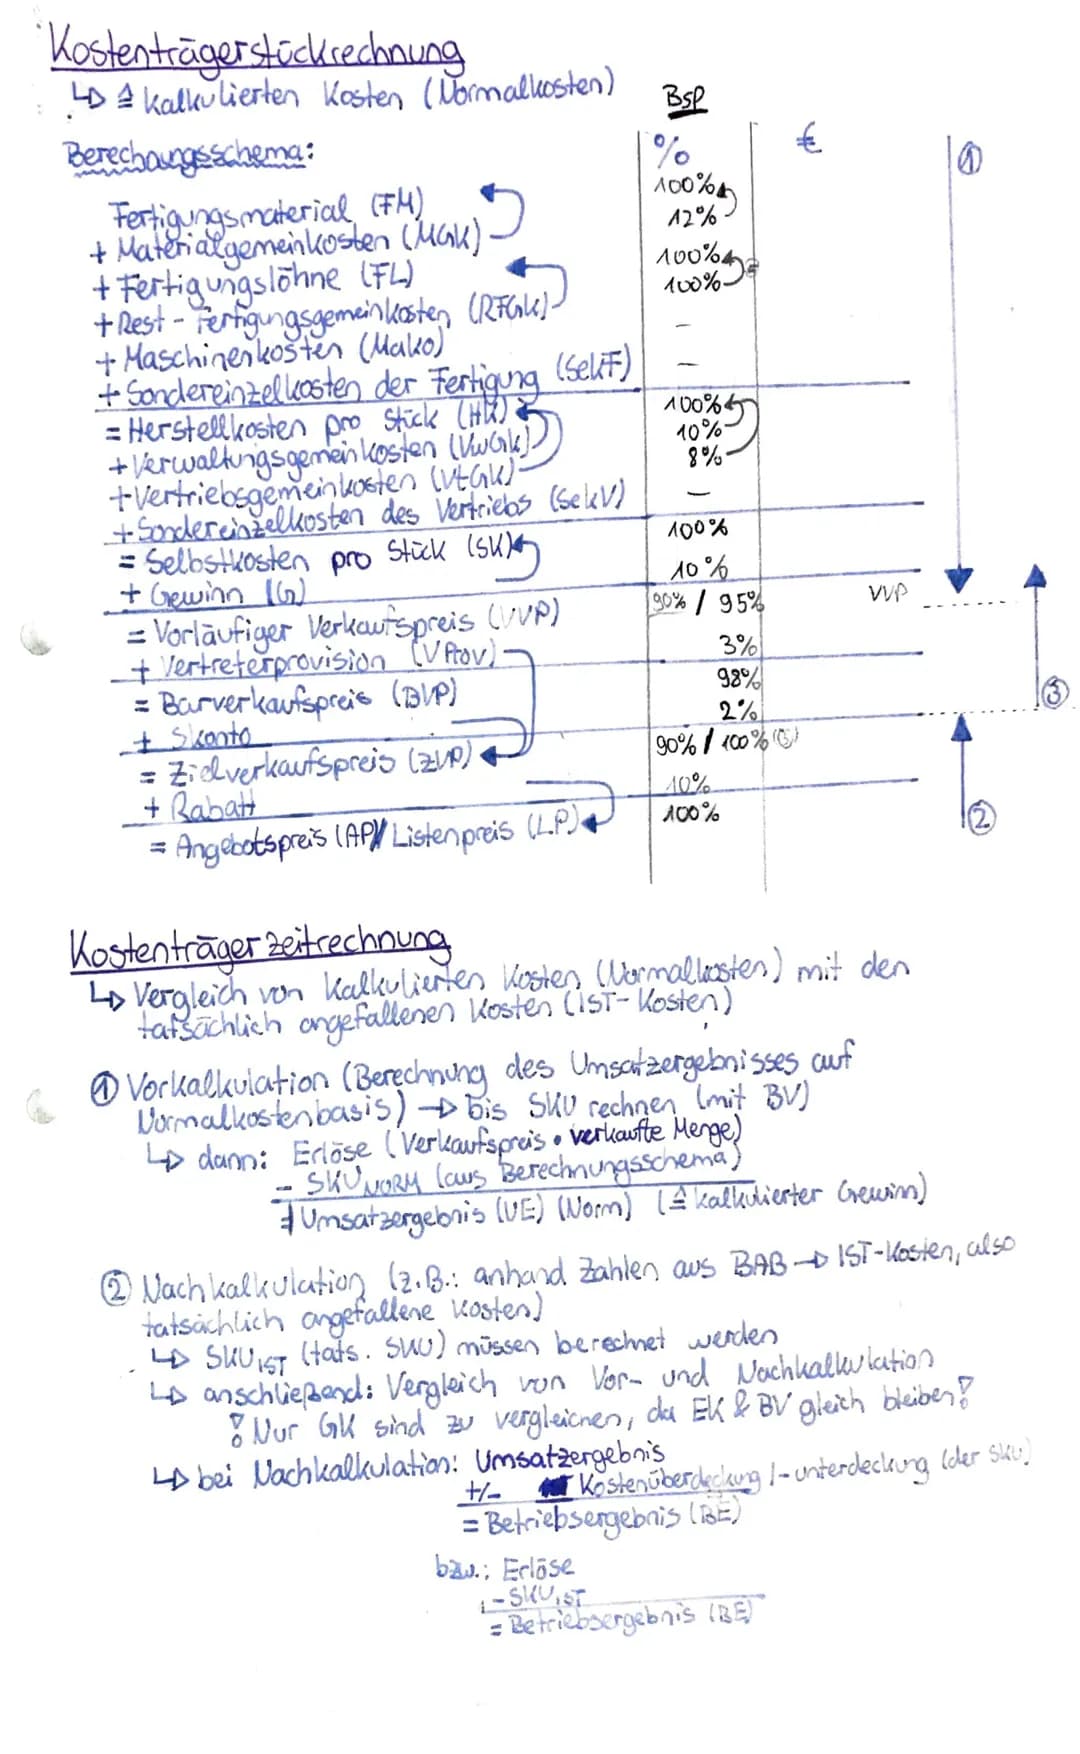 Kostenträgerstückrechnung
↳ ≙ kalkulierten Kosten (Normalkosten)
Bsp
Berechnungsschema:
% €
①
Fertigungsmaterial (FM) 100%
+ Materialgemeinkosten (MGK) 12%
+ Fertigungslöhne (FL) 100%
+ Rest-Fertigungsgemeinkosten (RFGK) 100%
+ Maschinenkosten (Mako) –
+ Sondereinzelkosten der Fertigung (SekF) –
= Herstellkosten pro Stück (HK) 100%
+ Verwaltungsgemeinkosten (VwGK) 10%
+ Vertriebsgemeinkosten (VtGK) 8%
+ Sondereinzelkosten des Vertriebs (SekV) –
= Selbstkosten pro Stück (SK) 100%
+ Gewinn (G) 10%
= Vorläufiger Verkaufspreis (VVP) 90% / 95% VVP
+ Vertreterprovision (VProv) 3%
= Barverkaufspreis (BVP) 98%
+ Skonto 2% ③
= Zielverkaufspreis (ZVP) 90% / 100%
+ Rabatt 10%
= Angebotspreis (AP) / Listenpreis (LP) 100% ②
Kostenträgerzeitrechnung
↳ Vergleich von kalkulierten Kosten (Normalkosten) mit den
tatsächlich angefallenen Kosten (IST-Kosten)
① Vorkalkulation (Berechnung des Umsatzergebnisses auf
Normalkostenbasis) → bis SKU rechnen (mit BV)
↳ dann: Erlöse (Verkaufspreis • verkaufte Menge)
- SKU NORM (aus Berechnungsschema)
= Umsatzergebnis (UE) (Norm) (≙ kalkulierter Gewinn)
② Nachkalkulation (z.B.: anhand Zahlen aus BAB → IST-Kosten, also
tatsächlich angefallene Kosten)
↳ SKU IST (tats. SKU) müssen berechnet werden
↳ anschließend: Vergleich von Vor- und Nachkalkulation
! Nur GK sind zu vergleichen, da EK & BV gleich bleiben!
↳ bei Nachkalkulation: Umsatzergebnis
+/- Kostenüberdeckung /-unterdeckung (der SKU)
= Betriebsergebnis (BE)
bzw.: Erlöse
- SKU IST
= Betriebsergebnis (BE)